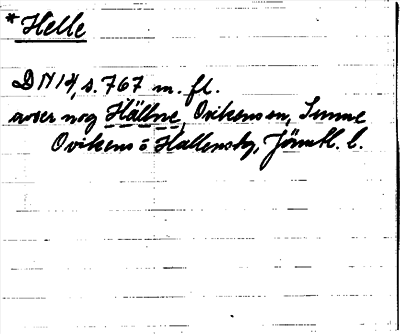 *Helle
DN 14, s. 767 m. fl.
avser nog Hällne, Ovikens sn, Sunne
Ovikens o Hallens tg, Jämtl. l.